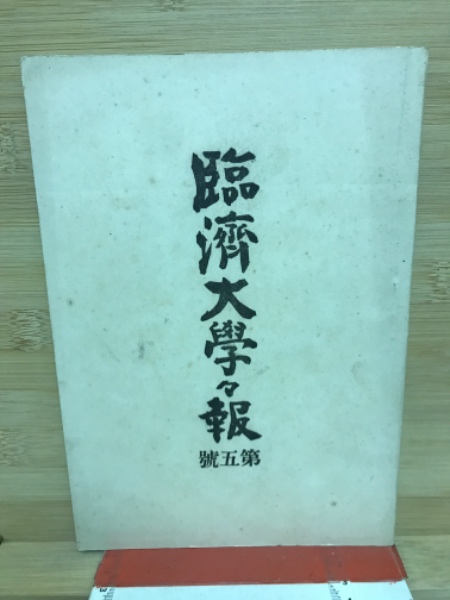 臨濟大學々報
第五號